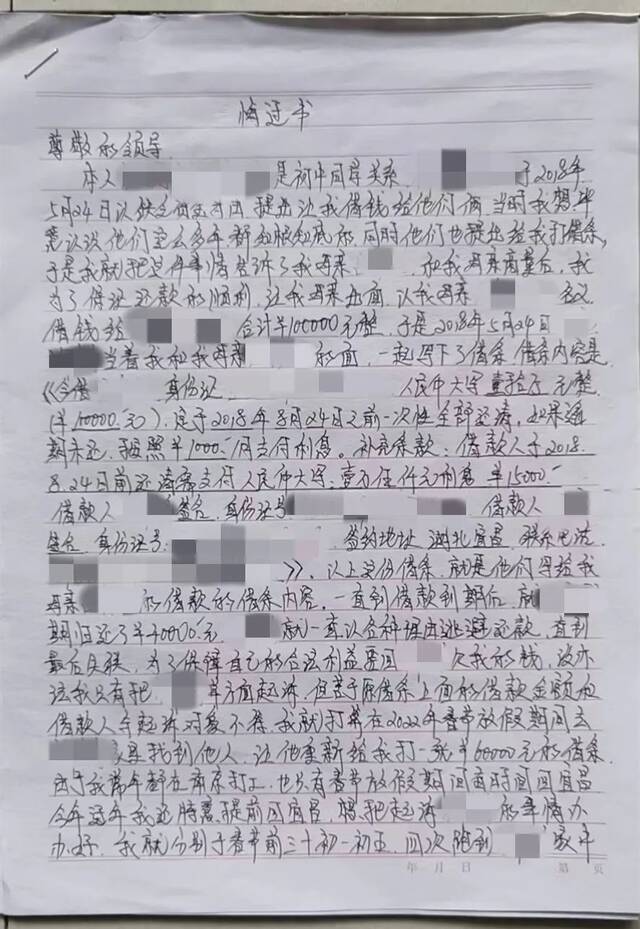 悔过书
尊敬的领导
本人 是初中同学关系, 于2018年
5月24日以 提出让我借钱给他们俩,当时我想毕
竟认识他们这么多年都 的,同时他们也提出给我打借条,
于是我就把这件事情告诉了我母亲 和我母亲商量后,我
为了保证还款的顺利,让我母亲出面,以我母亲 名义
借钱给 合计¥100000元整,于是2018年5月24日
当着我和我母亲 的面,一起写下了借条,借条内容是
《今借 身份证 人民币大写:壹拾万元整
(¥100000元),定于2018年8月24日之前一次性全部还清,如果逾
期未还,按照¥1000/月支付利息。补充条款:借款人于2018.
8.24日前还清需支付人民币大写:壹万伍仟元利息 ¥15000
借款人 签名,身份证号 借款人
签名,身份证号: 签约地址 湖北宜昌,联系电话
》、以上这份借条,就是他们写给我
母亲 的借款的借条内容。一直到借款到期后, 就
期归还了¥40000元. 就一直以各种理由逃避还款,直到
最后失联,为了保障自己的合法利益要回 欠我的钱,没办
法我只有把 单方面起诉,但苦于原借条上面的借款金额和
借款人与起诉对象不符,我就打算在2022年春节放假期间去
家里找到他人,让他重新给我打一张¥60000元的借条,
由于我常年都在南京打工,也只有春节放假期间有时间回宜昌
今年过年我还特意提前回宜昌,想把起诉 的事情办
办好,我就分别于春节前三十初一初五,四次跑到 家中
年 月 日 第 页